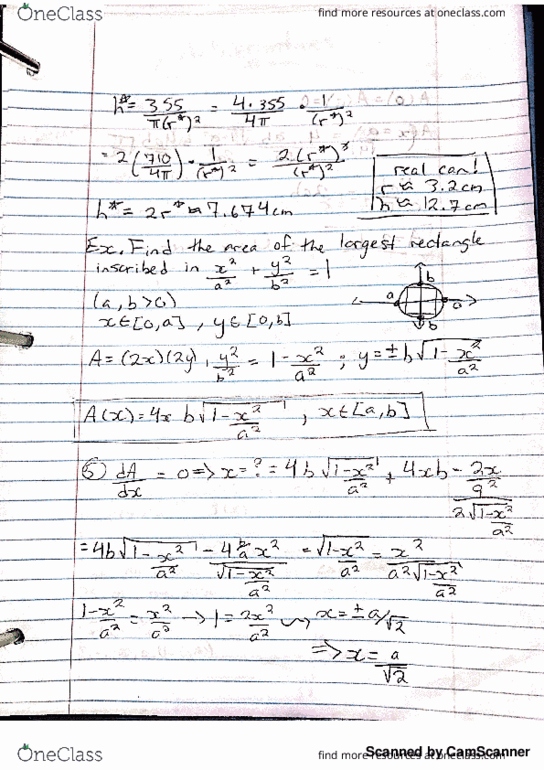 OneClass
find more resources at oneclass.com
h* = 355/π(r*)² = 4·355/4π · 1/(r*)²
= 2(710/4π) · 1/(r*)² = 2(r*)³/(r*)²
real can!
r ≈ 3.2cm
h ≈ 12.7cm
h* = 2r* ≈ 7.674cm
Ex. Find the area of the largest rectangle
inscribed in x²/a² + y²/b² = 1
(a, b > 0)
x ∈ [0, a], y ∈ [0, b]
b
a
a
b
A = (2x)(2y), y²/b² = 1 - x²/a² ; y = ± b√(1 - x²/a²)
A(x) = 4x b√(1 - x²/a²), x ∈ [a, b]
⑤ dA/dx = 0 => x = ? = 4b√(1 - x²/a²) + 4xb · (- 2x/a²)/(2√(1 - x²/a²))
= 4b√(1 - x²/a²) - (4 b/a x²)/√(1 - x²/a²) = √(1 - x²/a²) = x²/(a²√(1 - x²/a²))
1 - x²/a² = x²/a² → 1 = 2x²/a² ⇝ x = ± a/√2
=> x = a/√2
OneClass
find more resources at oneclass.com
Scanned by CamScanner